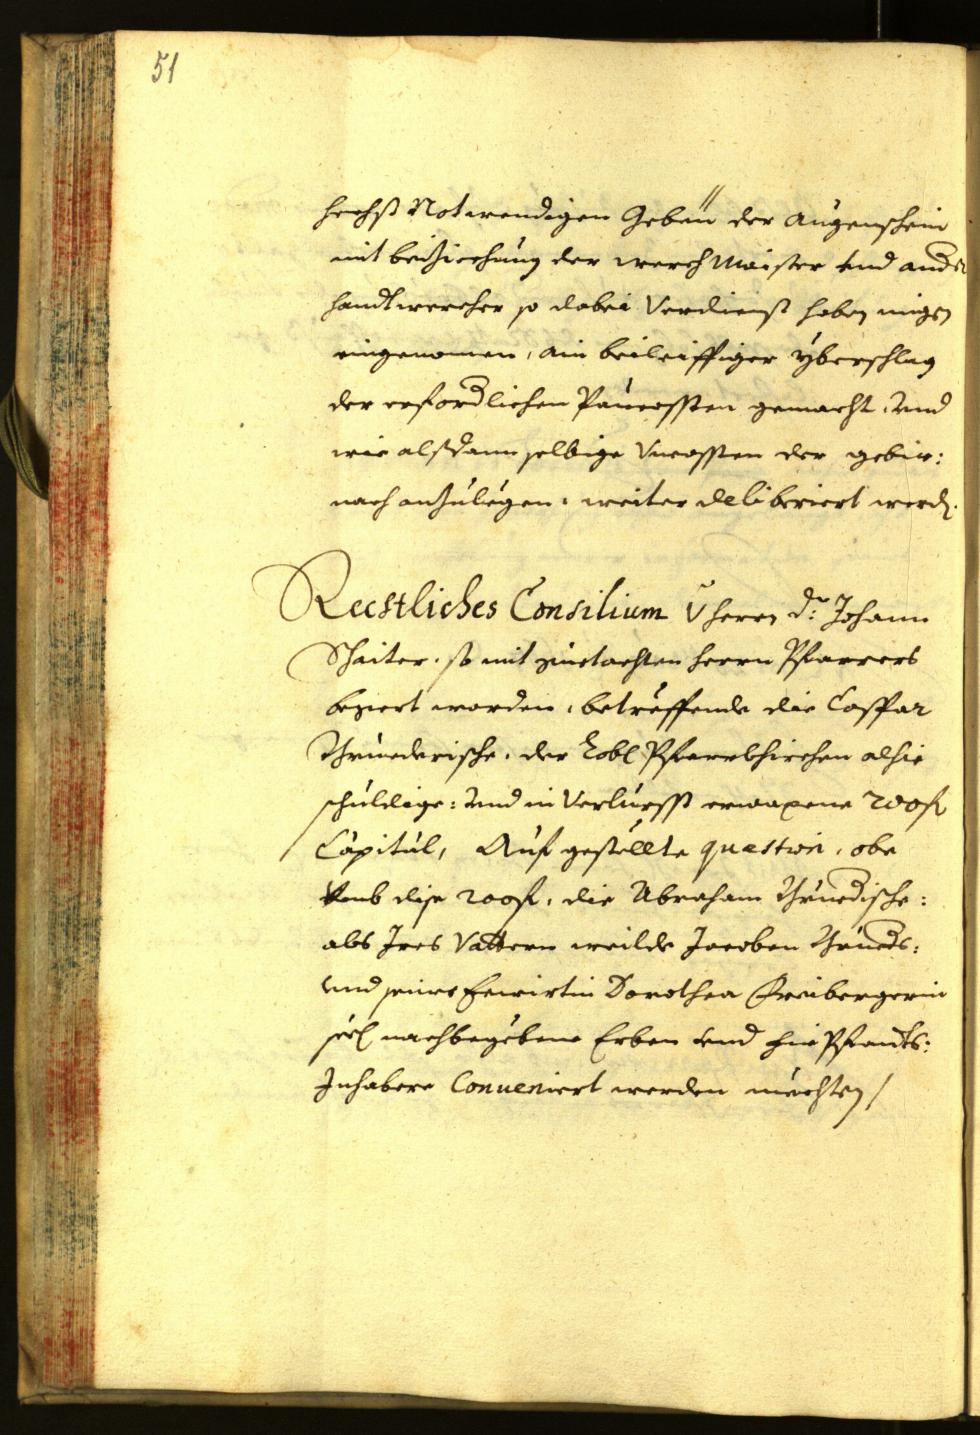 51
hechst Notwendigen Gebeü der augenschein
mit beiziechung der werch Maister vnd ander
handtwercher so dabei Verdienst haben migen
eingenomen, ain beileiffiger yberschlag
der erfordlichen Paucossten gemacht, vnd
wie alßdann selbige Vncossten der gebir:
nach anzulegen, weiter deliberiert werd.
Rechtliches Consilium v herrn Dr: Johann
Schaiter, so mit guetachten herrn Pfarrers
beziert worden, betreffende die Casspar
der Lobl Pfarrkhirchen alhie
schuldige: vnd in Verlursst erwaxene 200 fl
Capital, Auf gestellte question, obe
vmb dise 200 fl, die Abraham
als Ires Vattern weilde Jacoben
vnd seiner Ewirtin Dorothea Freibergerin
seel nachbegebene Erben vnd hie Pfandts:
Inhabere Conueniert werden mechten /